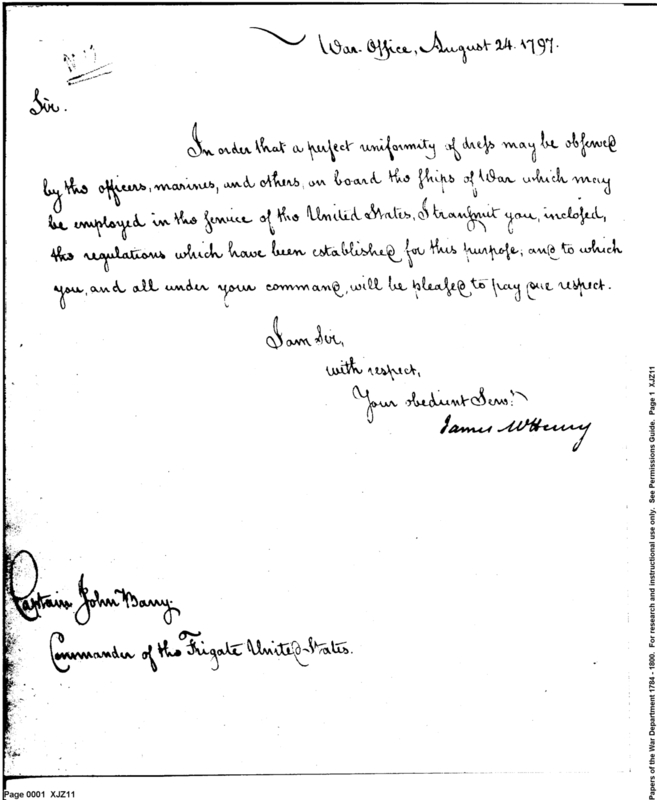 War Office, August 24. 1797.
Sir.
In order that a perfect uniformity of dress may be observed
by the officers, marines, and others, on board the ships of War which may
be employed in the service of the United States, I transmit you, inclosed,
the regulations which have been established for this purpose; and to which
you, and all under your command, will be pleased to pay due respect.
I am Sir,
with respect,
Your obedient Servt.
James McHenry
Captain John Barry.
Commander of the Frigate United States.
Page 0001 XJZ11
Papers of the War Department 1784 - 1800. For research and instructional use only. See Permissions Guide. Page 1 XJZ11